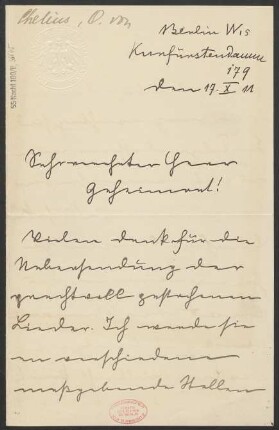 Chelius, O. von
Berlin W15
Kurfürstendamm
179
den 17. X 11
Sehr verehrter Herr
Geheimrat!
Vielen Dank für die
Uebersendung der
prachtvoll gestochenen
Lieder. Ich werde sie
an verschiedene
maßgebende Stellen